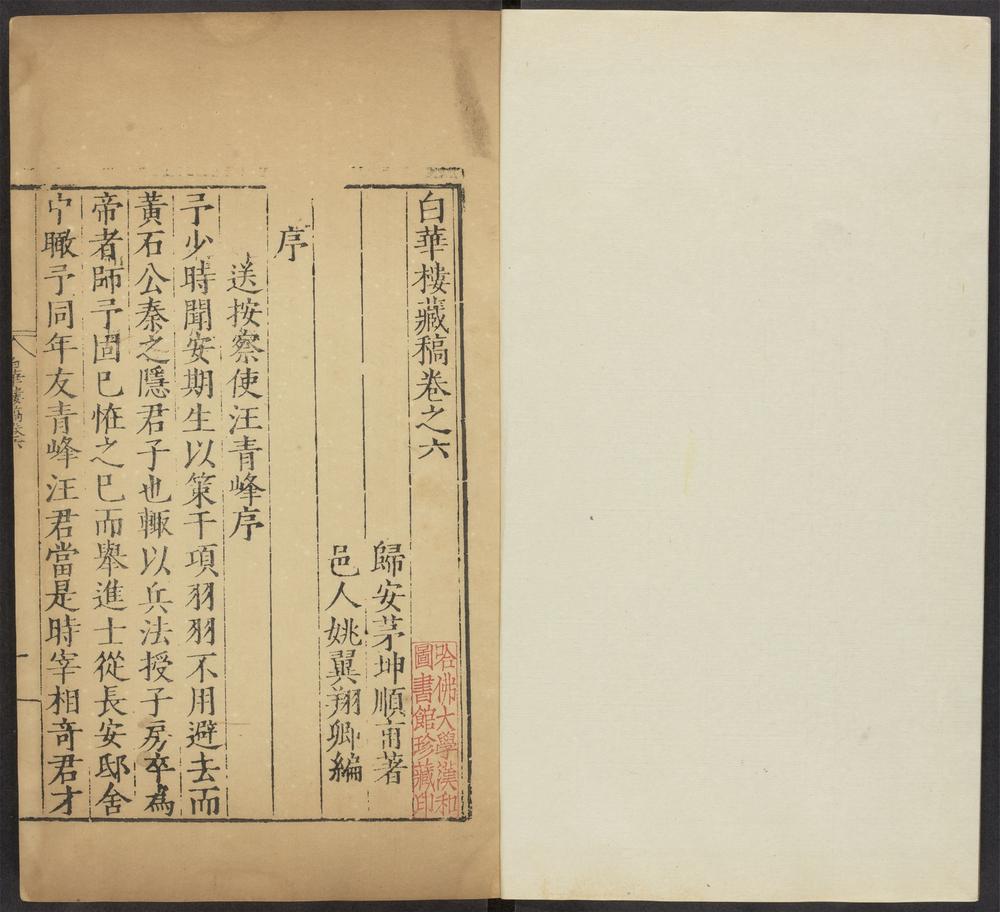 白華樓藏稿卷之六
歸安茅坤順甫著
邑人姚翼翔卿編
序
送按察使汪青峰序
予少時聞安期生以策干項羽羽不用避去而
黃石公秦之隱君子也輒以兵法授子房卒為
帝者師予固已恠之已而舉進士從長安邸舍
中瞰予同年友青峰汪君當是時宰相奇君才
哈佛大學漢和
圖書館珍藏印